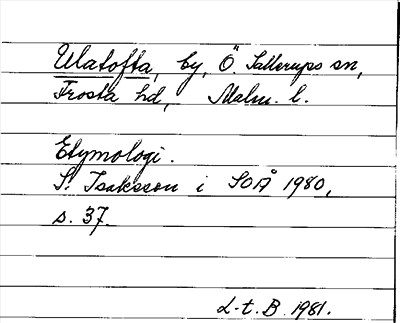 Ulatofta, by, Ö. Sallerups sn,
Frosta hd, Malm. l.
Etymologi.
S. Isaksson i SOÅ 1980,
s. 37.
L-t. B. 1981.